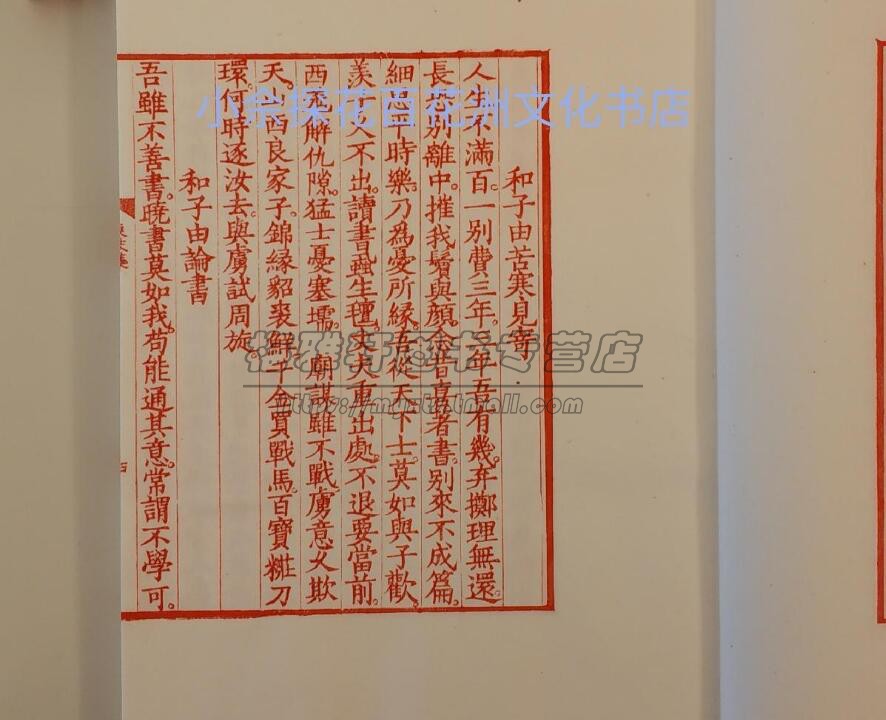 和子由苦寒見寄
人生不滿百。一别費三年。三年吾有幾。弃擲理無還。
長恐别離中。摧我鬢與顏。念昔喜著書。别來不成篇。
細思平時樂。乃爲憂所緣。吾從天下士。莫如與子歡。
羨子久不出。讀書蝨生氊。丈夫重出處。不退要當前。
西羌解仇隙。猛士憂塞壖。廟謀雖不戰。虜意久欺
天。山西良家子。錦緣貂裘鮮。千金買戰馬。百寶糚刀
環。何時逐汝去。與虜試周旋。
和子由論書
吾雖不善書。曉書莫如我。苟能通其意。常謂不學可。
小佘探花百花洲文化书店
专营店